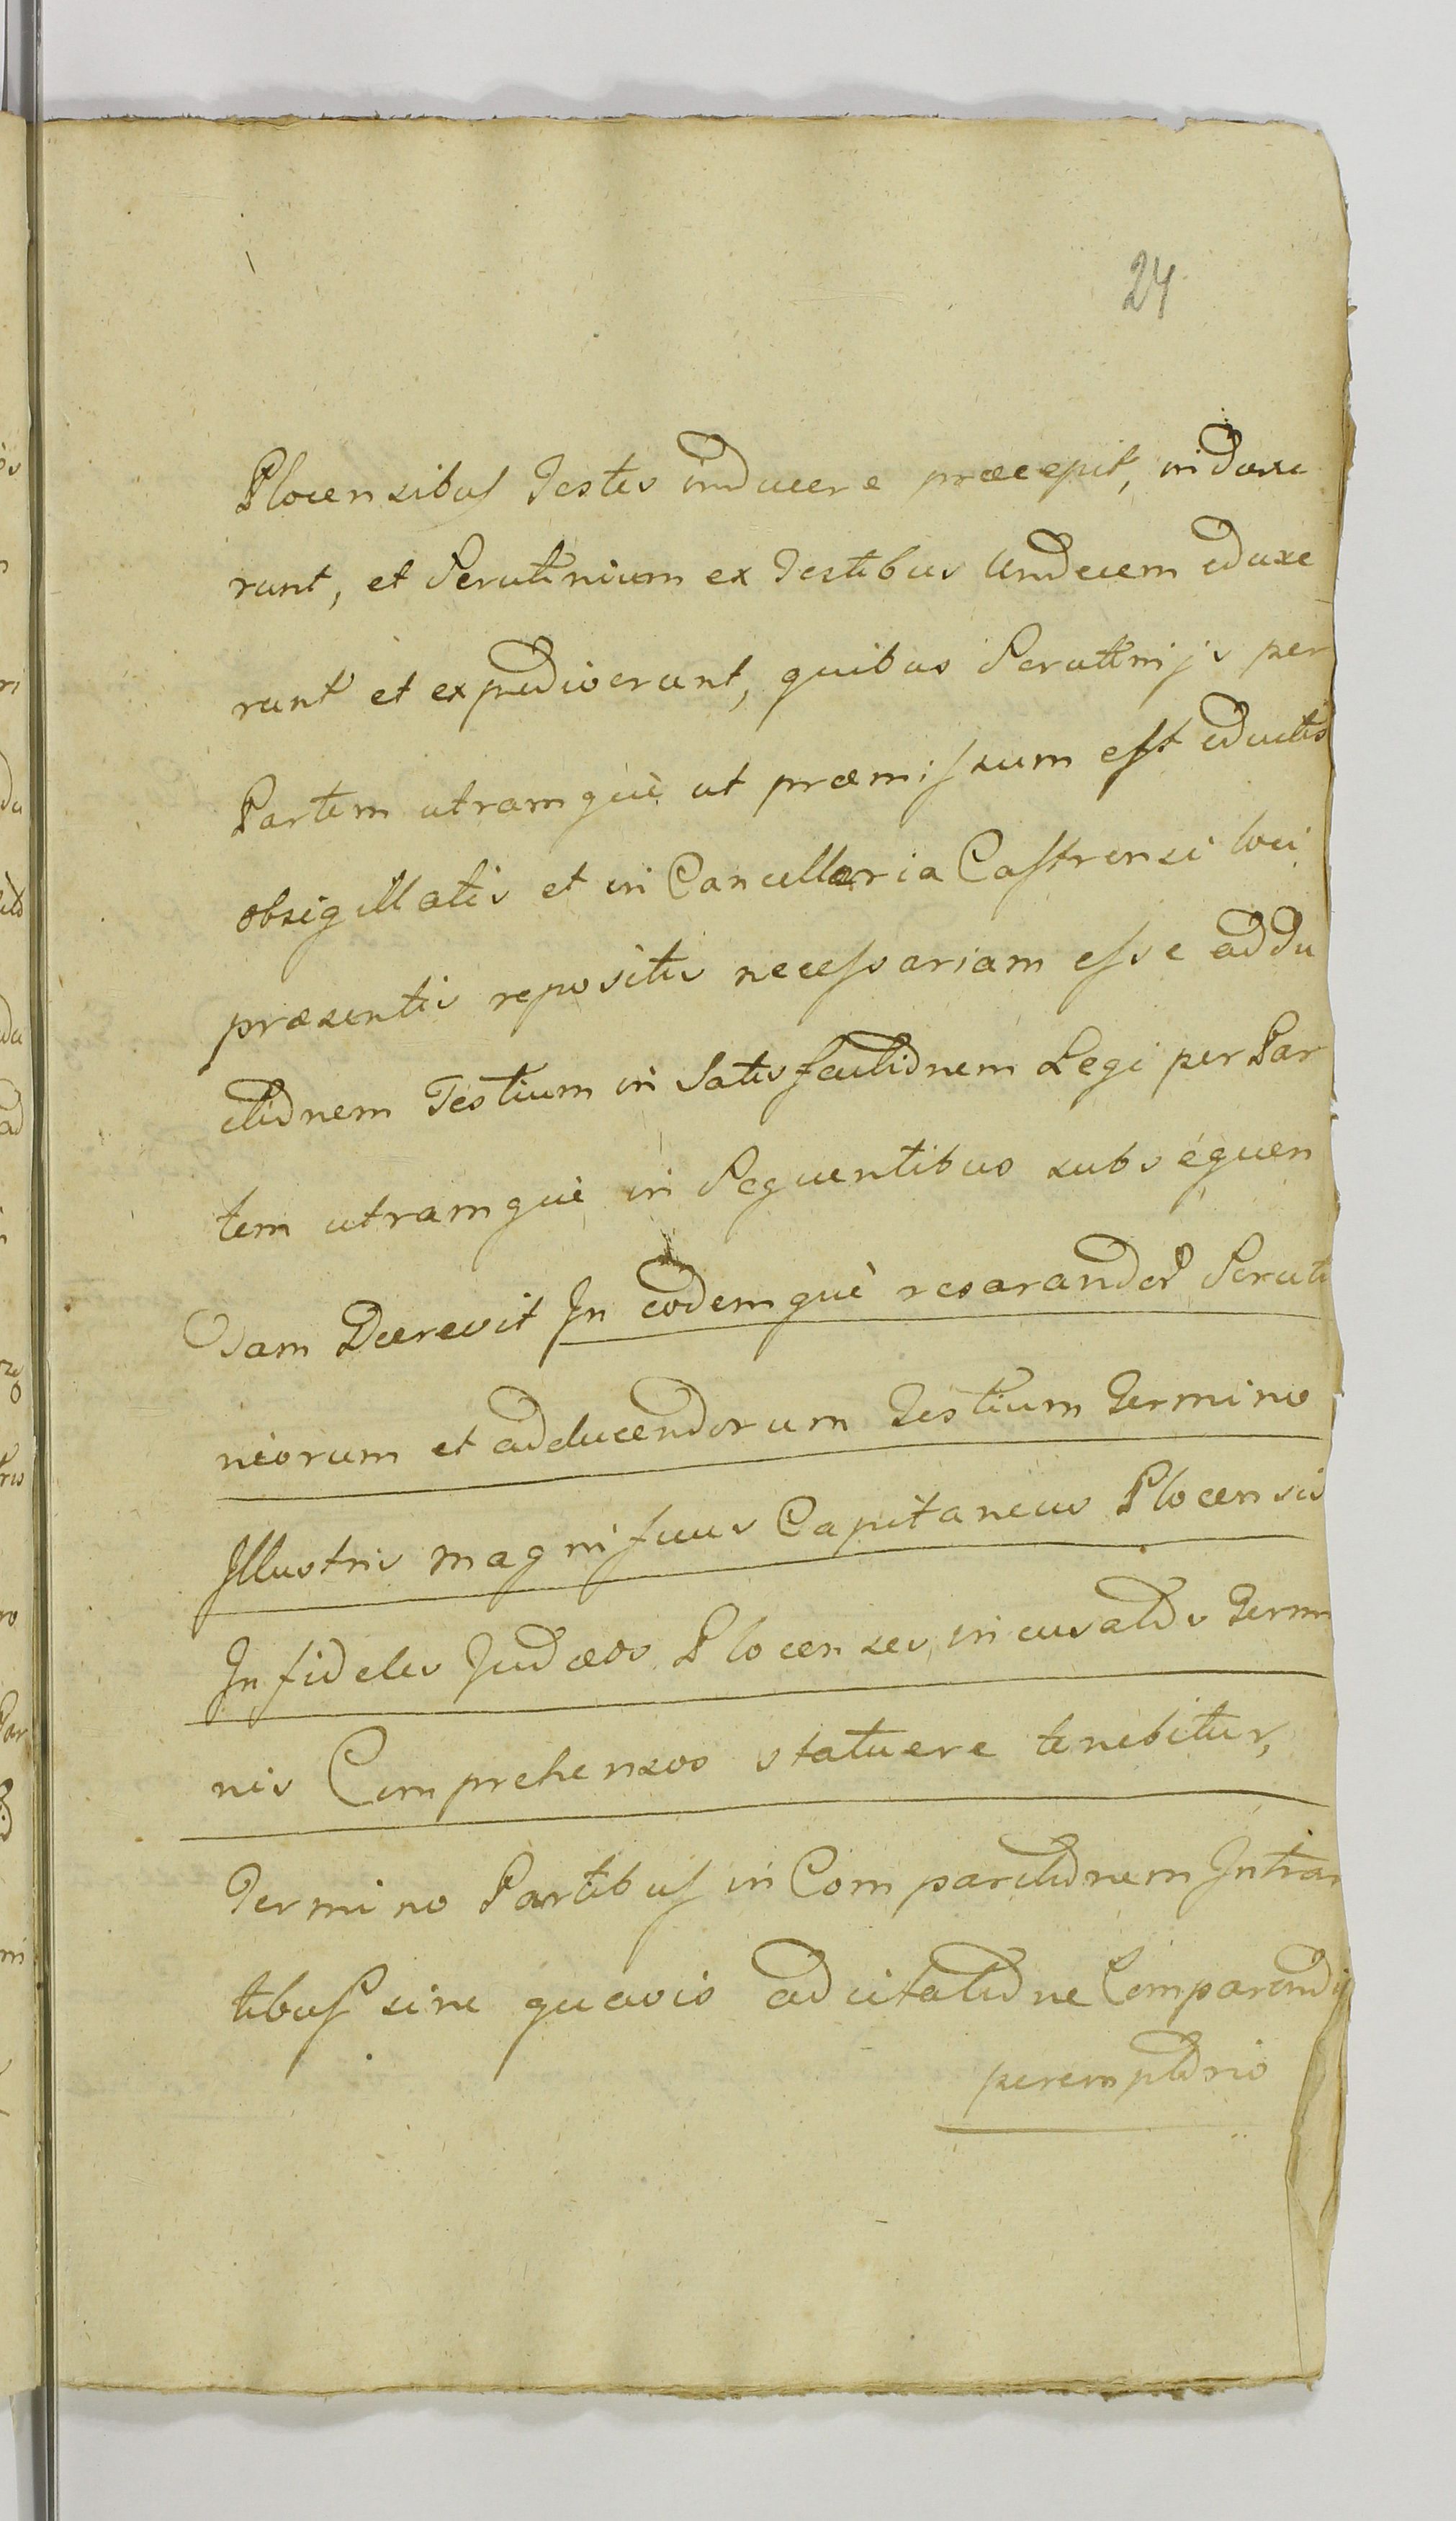 24
Plocensibus Testes inducere præcepit, induxe
runt, et Scrutinium ex Testibus Undecem eduxe
runt et expediverunt, quibus Scrutinijs per
Partem utramquè ut præmissum est eductis
obsigillatis et in Cancellaria Castrensi loci
præsentis repositis necessariam esse addu
ctionem Testium in Satisfactionem Legi per Par
tem utramquè in Sequentibus subsequen
dam Decrevit In eodemquè reserandor Scruti
niorum et adducendorum Testium Termino
Illustris Magnificus Capitaneus Plocensis
Infideles Judæos Plocenses, in causa Termi
nis Comprehensos statuere tenebitur,
Termino Partibus in Comparitionem Intran
tibus sine quavis adcitatione Comparendi
peremptorio